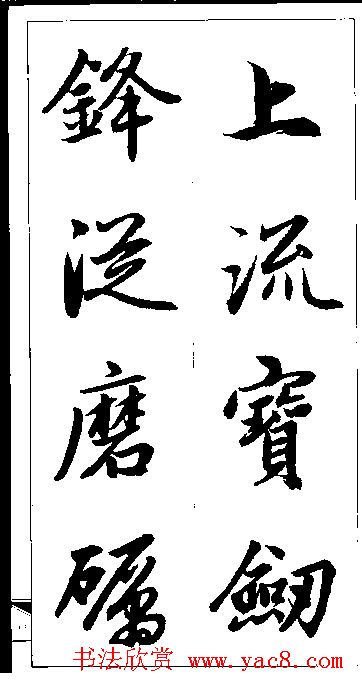 上流寶劒
鋒從磨礪
书法欣赏 www.yac8.com